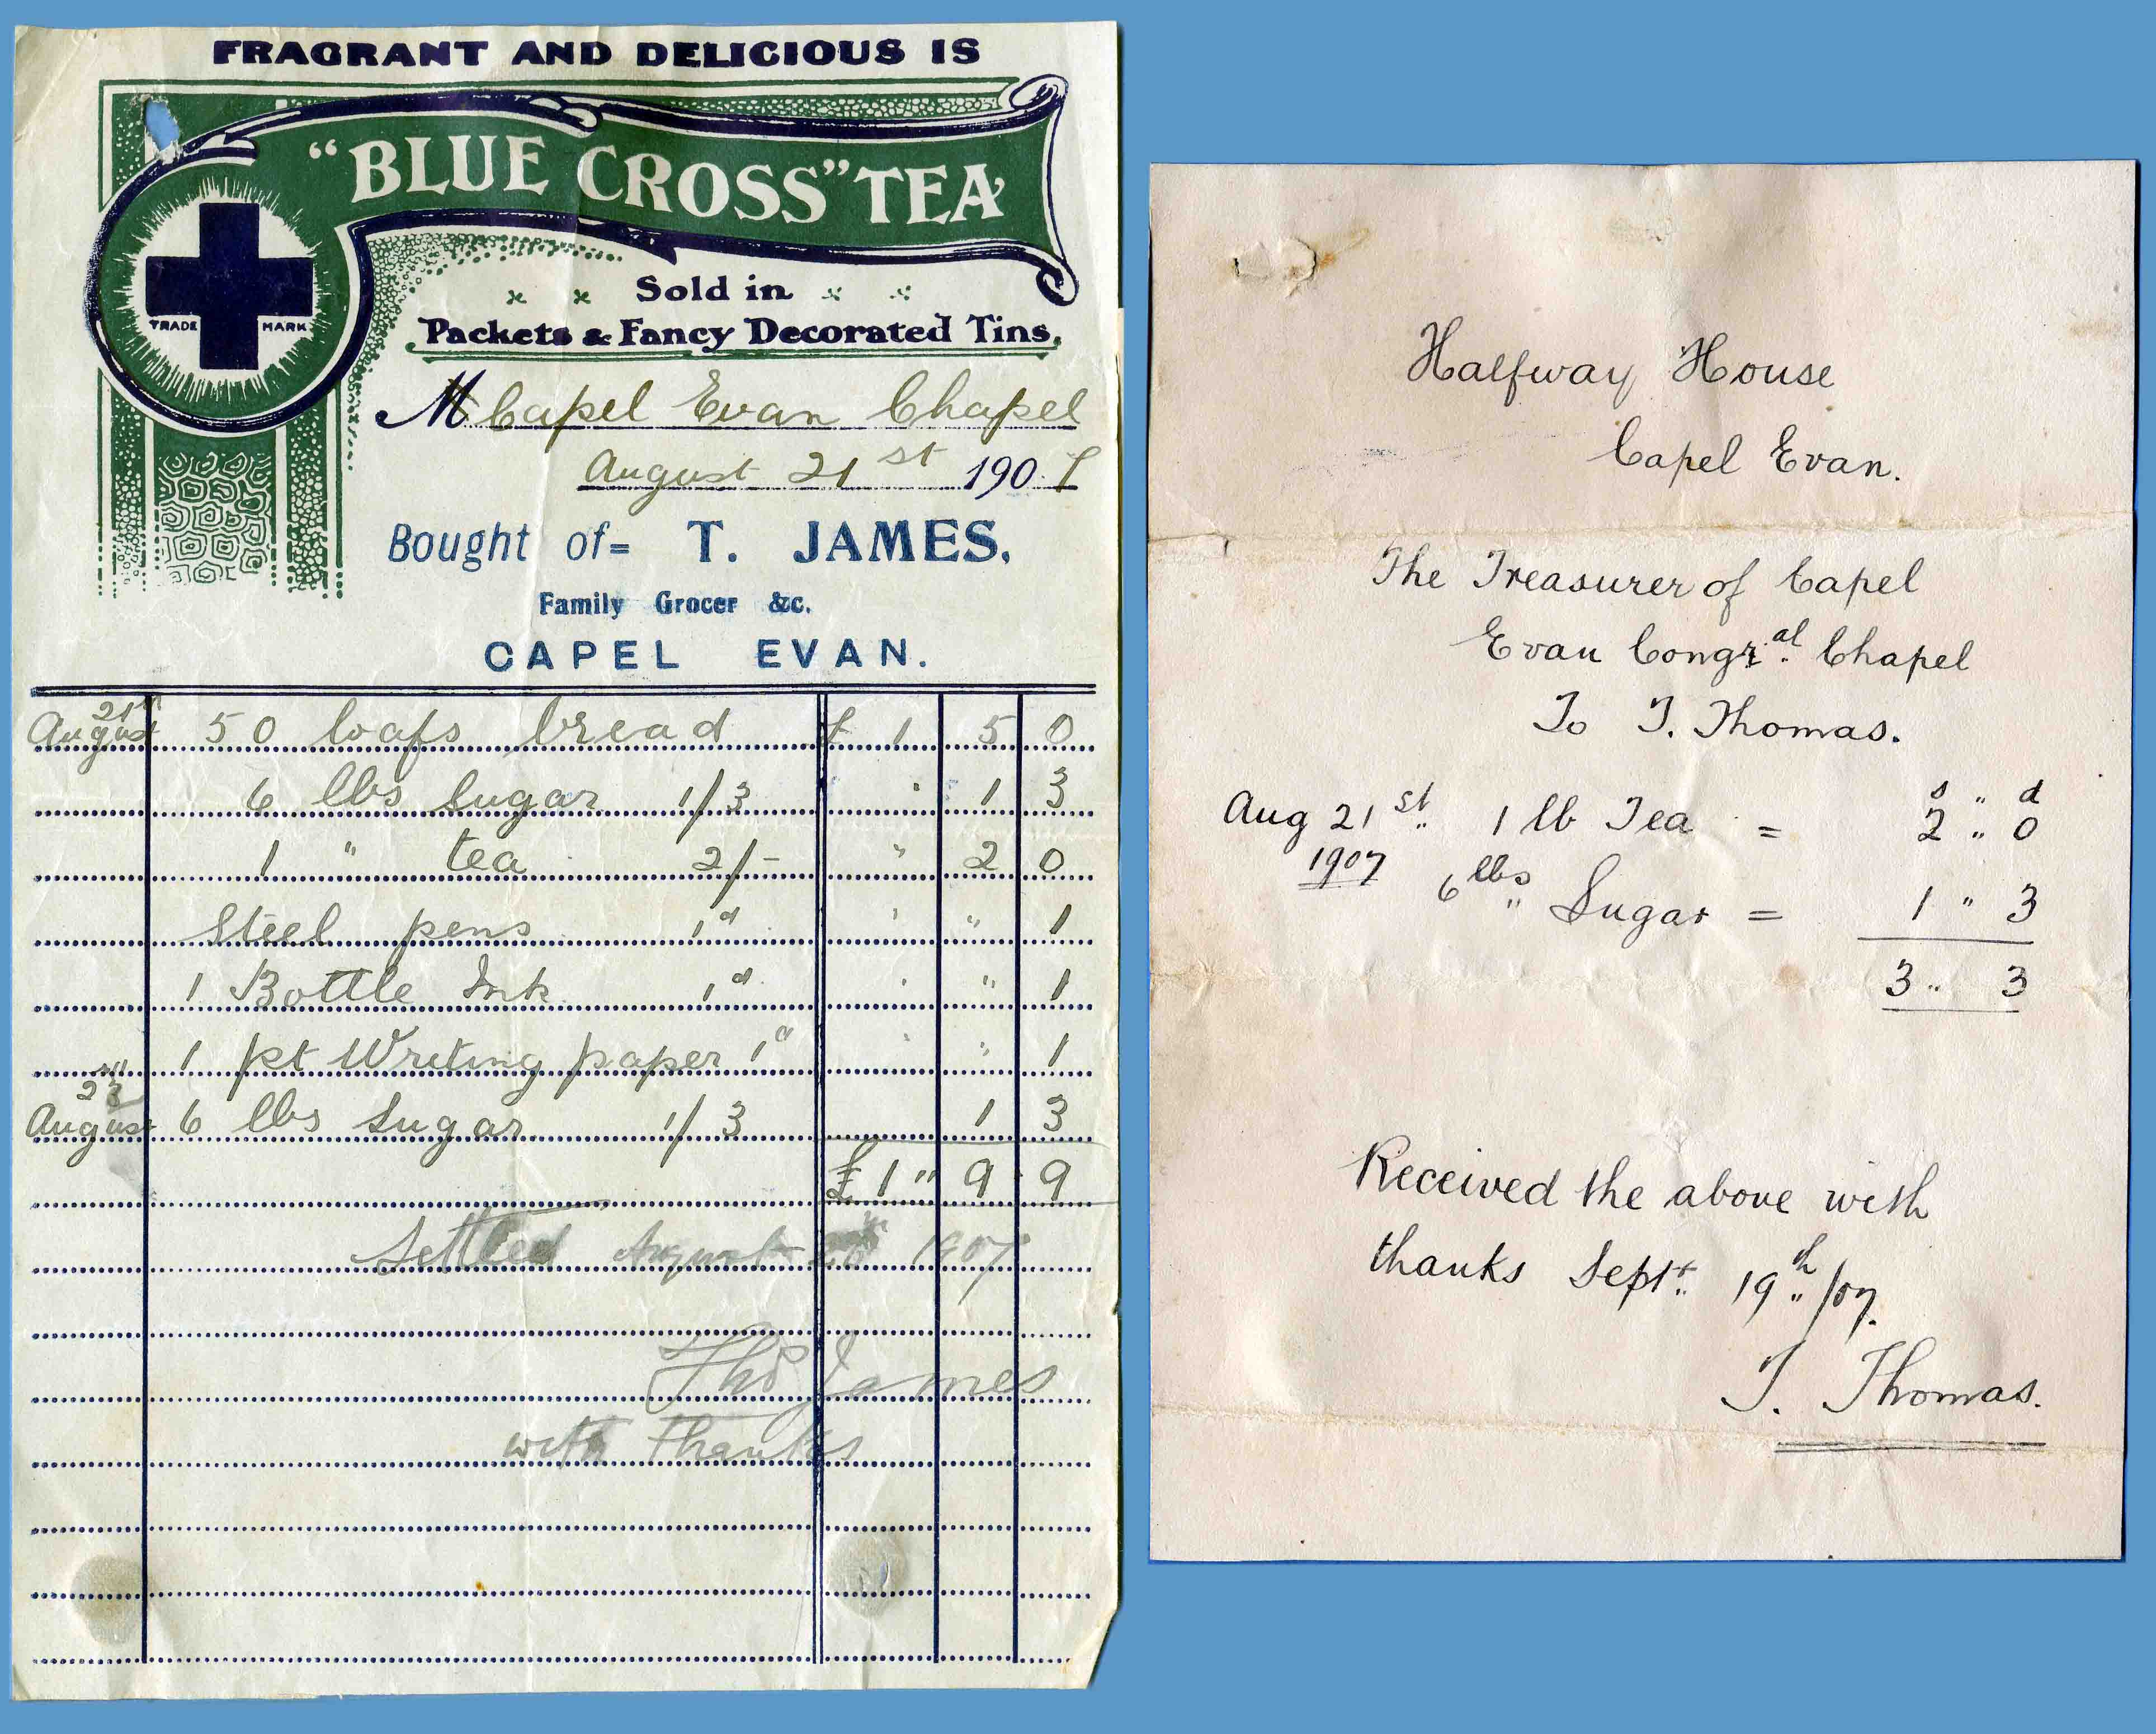 FRAGRANT AND DELICIOUS IS
"BLUE CROSS" TEA
TRADE MARK
Sold in
Packets & Fancy Decorated Tins.
M Capel Evan Chapel
August 21st 1907
Bought of= T. JAMES,
Family Grocer &c.
CAPEL EVAN.
August 21st 50 loafs bread £ 1 5 0
6 lbs Sugar 1/3 " 1 3
1 " tea 2/- " 2 0
Steel pens 1d " " 1
1 Bottle Ink 1d " " 1
1 pt Writing paper 1d " " 1
August 23 6 lbs Sugar 1/3 1 3
£ 1 " 9 9
Settled August 1907
Thos James
with thanks
Halfway House
Capel Evan.
The Treasurer of Capel
Evan Congral Chapel
To T. Thomas.
s " d
Aug 21st 1 lb Tea = 2 " 0
1907 6 lbs Sugar = 1 " 3
3 " 3
Received the above with
thanks Sept. 19th/07.
T. Thomas.